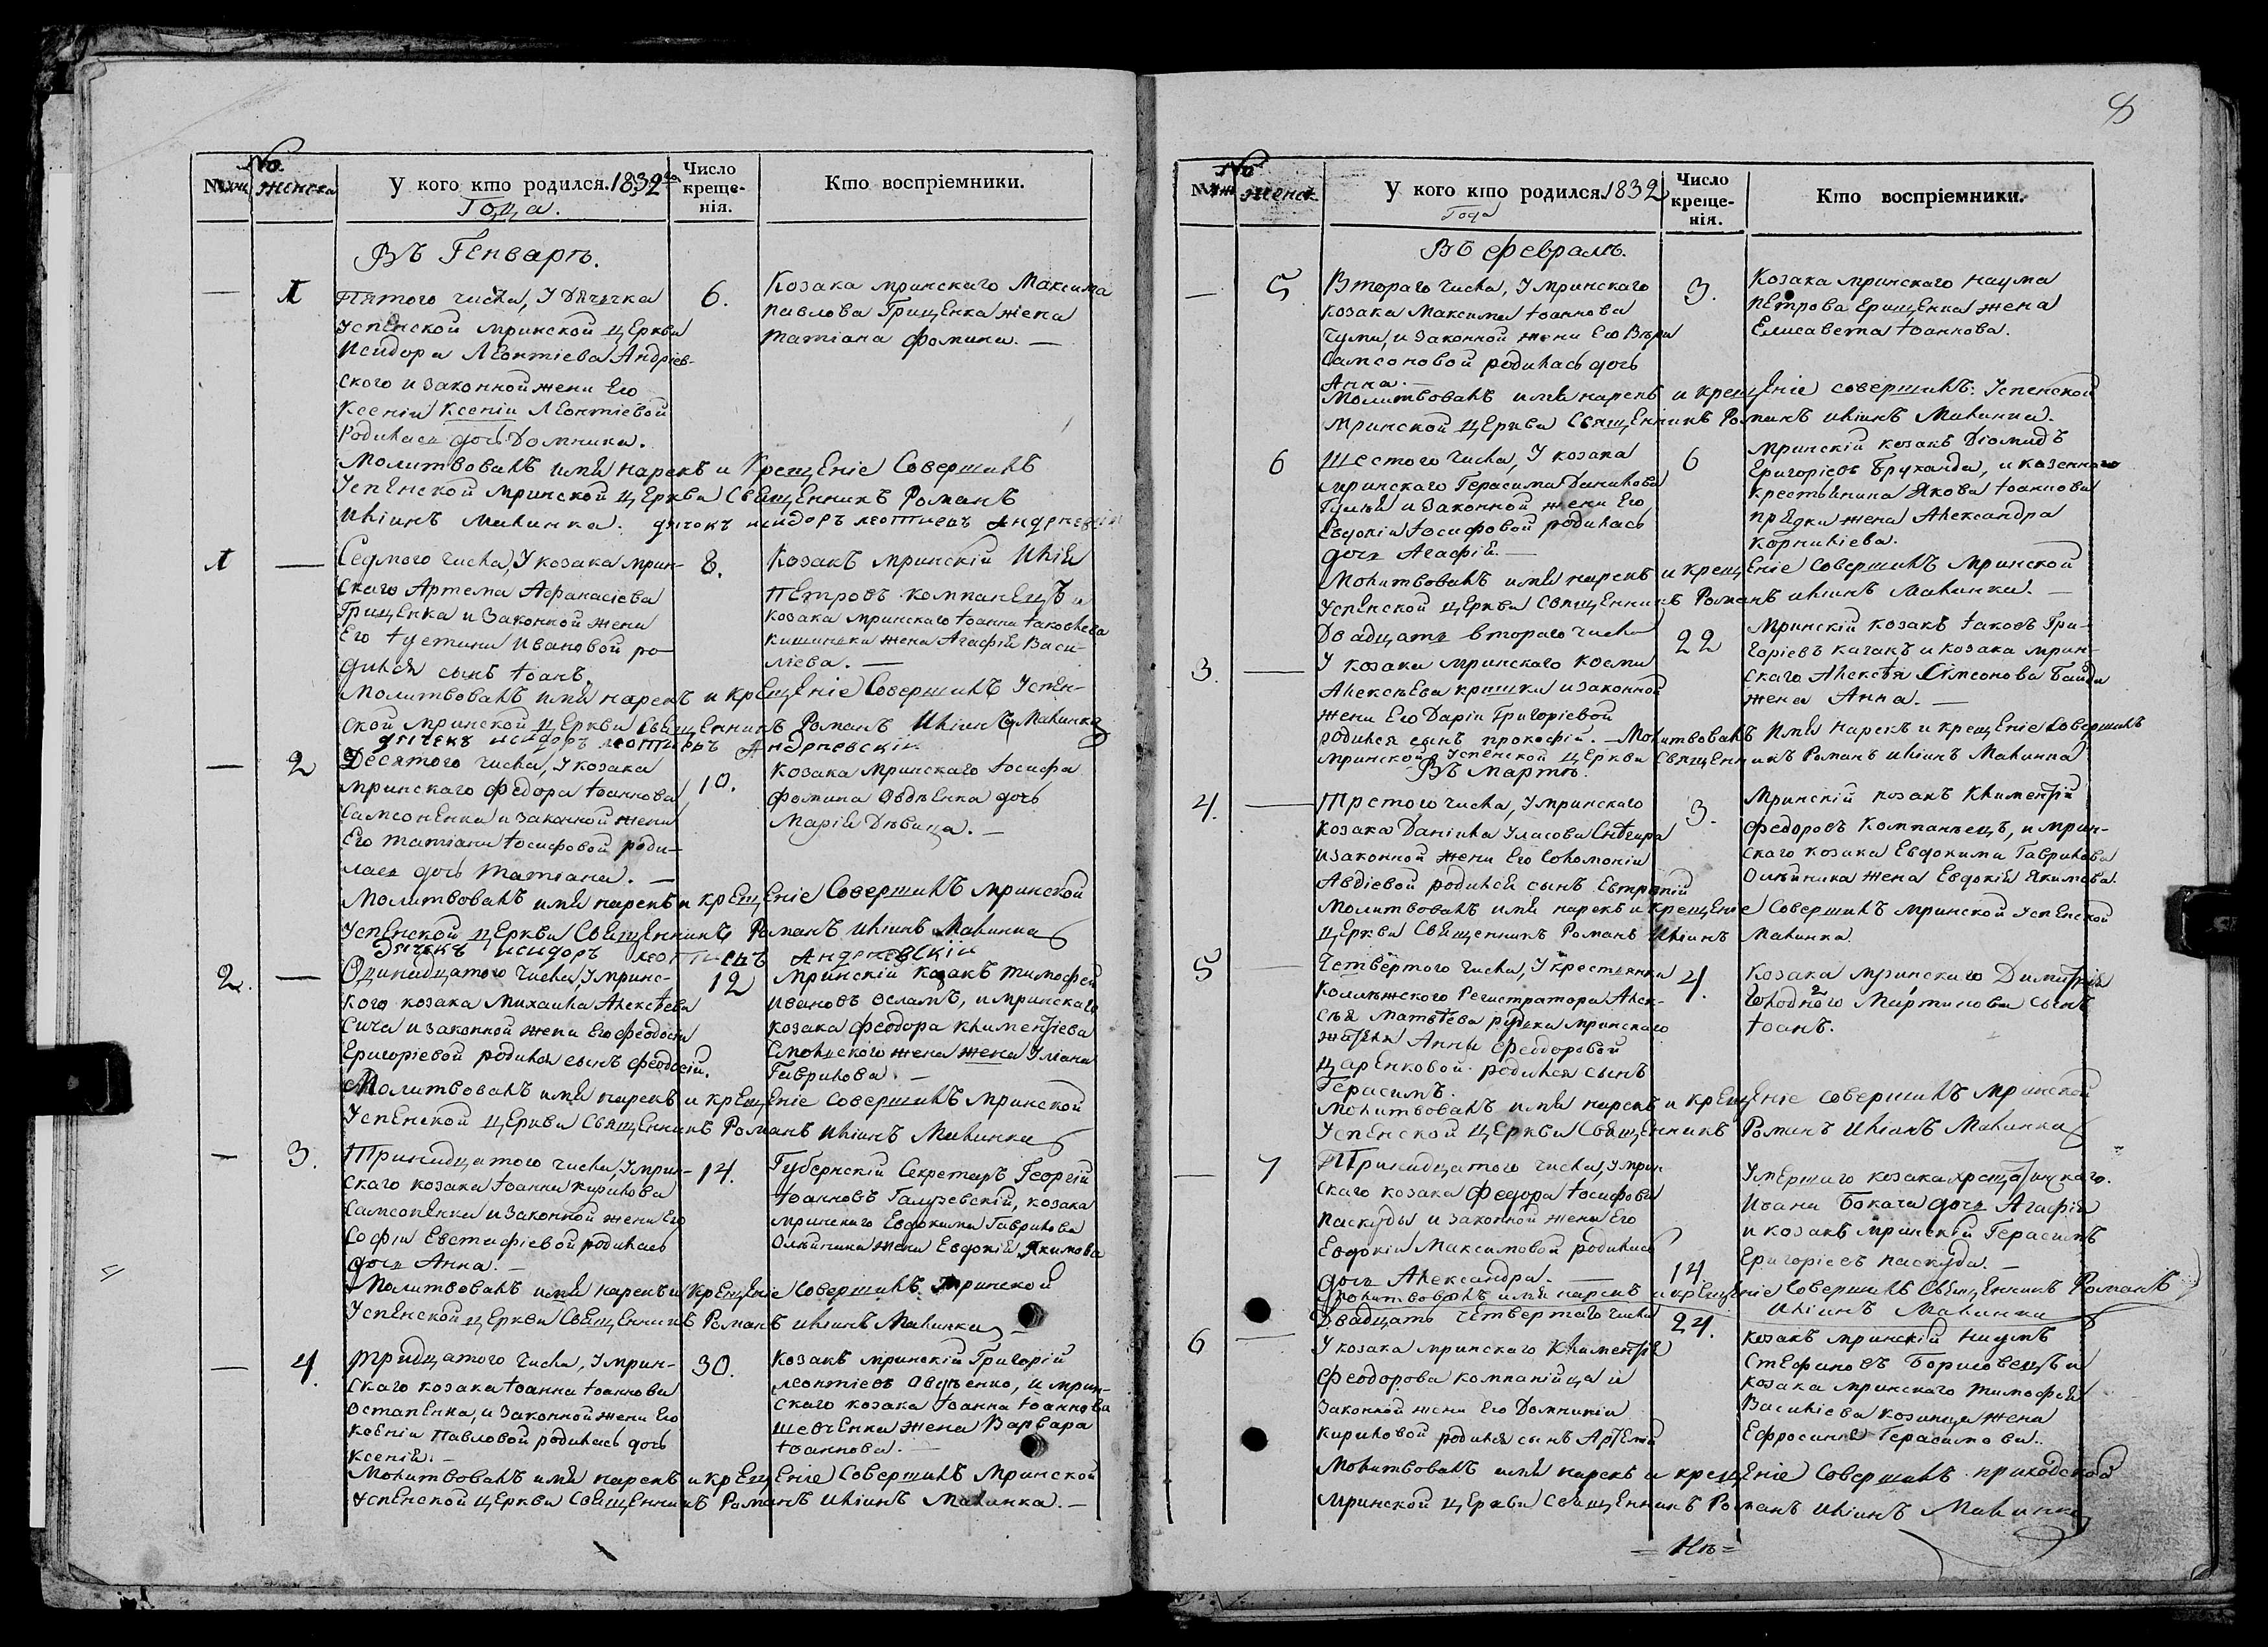 №
Муж женска
У кого кто родился. 1832го
Года.
Число
креще-
нія.
Кто воспріемники.
Въ Генварѣ.
1
Пятого числа, У Дячка
Успенской мринской церкви
Исидора Леонтіева Андріев-
ского и законной жени Его
Ксеніи Ксеніи Леонтіевой
Родилась дочь Домника.
6.
Козака мринскаго Максима
Павлова Грищенка жена
Татіана Фомина.
Молитвовалъ имя нарекъ и Крещеніе Совершилъ
Успенской мринской Церкви Священникъ Романъ
Иліинъ Малинка. дячокъ исидоръ леотиевъ андриевскій
1
Седмого числа, У козака мрин-
скаго Артема Афанасіева
Грищенка и Законной жени
Его Іустини Ивановой ро-
дился сынъ Іоанъ.
8.
Козакъ мринскій Илія
Петровъ компанецъ и
козака мринскаго Іоанна Іаковлева
кишинска жена Агафія Васи-
ліева.
Молитвовалъ имя нарекъ и крещеніе Совершилъ Успен-
ской мринской Церкви священникъ Романъ Иліинъ Малинка
дячекъ исидоръ леотиевъ Андриевскій
2
Десятого числа, У козака
мринскаго Федора Іоаннова
Самсоненка и законной жени
Его Татіани Іосифовой роди-
лась дочь Татіана.
10.
Козака мринскаго Іосифа
Фомина Овдѣенка дочь
Марія Дѣвица.
Молитвовалъ имя нарекъ и крещеніе Совершилъ мринской
Успенской Церкви Священникъ Романъ Иліинъ Малинка
Дячекъ исидоръ леоттиевъ Андриевскій
2.
Одинадцатого числа, У мринс-
кого козака Михаила Алексѣева
Сича и законной жени Его феодосіи
Григоріевой родился сынъ феодосій.
12
Мринскій козакъ Тимофей
Ивановъ Осламъ, и мринскаго
козака феодора Климентіева
Смолского жена жена Уліана
Гаврилова.
Молитвовалъ имя нарекъ и крещеніе совершилъ мринской
Успенской Церкви Священникъ Романъ Иліинъ Малинка
3.
Тринадцатого числа, У мрин-
скаго козака Іоанна Кирилова
Самсоненка и законной жени Его
Софіи Евстафіевой родилась
дочь Анна.
14.
Губернскій Секретаръ Георгій
Іоанновъ Галузевскій, козака
мринскаго Евдокима Гаврилова
Олѣйника жена Евдокія Якимова
Молитвовалъ имя нарекъ и крещеніе Совершилъ Мринской
Успенской церкви Священникъ Романъ Иліинъ Малинка
4.
Тридцатого числа, У мрин-
скаго козака Іоанна Іоаннова
Остапенка, и законной жени Его
Ксеніи Павловой родилась дочь
Ксенія.
30.
Козакъ мринскій Григорій
Леонтіевъ Овдѣенко, и мрин-
скаго козака Іоанна Іоаннова
шевченка жена Варвара
Іоаннова.
Молитвовалъ имя нарекъ и крещеніе Совершилъ Мринской
Успенской церкви Священникъ Романъ Иліинъ Малинка.
8
№
Муж женск
У кого кто родился 1832
Года
Число
креще-
нія.
Кто воспріемники.
Въ Февралѣ.
5
Втораго числа, У мринскаго
козака Максима Іоаннова
Чуми, и законной жени Его Вѣри
Самсоновой родилась дочь
Анна.
3.
Козака мринскаго Наума
Петрова Ерищенка жена
Елисавета Іоаннова.
Молитвовалъ имя нарекъ и крещеніе совершилъ Успенской
мринской церкви Священникъ Романъ Иліинъ Малинка.
6
Шестого числа, У козака
мринскаго Герасима Данилова
Гулія и законной жени Его
Евдокіи Іосифовой родилась
дочь Агафія.
6
Мринскій козакъ Діомидъ
Григоріевъ Брухалда, и казенного
крестьянина Якова Іоаннова
прядки жена Александра
Корниліева.
Молитвовалъ имя нарекъ и крещеніе Совершилъ Мринской
Успенской церкви Священникъ Романъ Иліинъ Малинка.
3.
Двадцать втораго числа
У козака мринскаго Косми
Алексѣева кришки и законной
жени Его Даріи Григоріевой
родился сынъ прокофій.
22
Мринскій козакъ Іаковъ Гри-
горіевъ качакъ и козака мрин-
скаго Алексѣя Самсонова Байди
жена Анна.
Молитвовалъ Имя нарекъ и крещеніе совершилъ
мринской Успенской церкви Священникъ Романъ Иліинъ Малинка
Въ Мартѣ.
4.
Третого числа, У мринскаго
козака Даніила Уласова
и законной жени Его Соломоніи
Авдіевой родился сынъ Евтропій
3.
Мринскій козакъ Климентій
Федоровъ Компанѣецъ, и мрин-
скаго козака Евдокима Гаврилова
Олѣйника жена Евдокія Якимова.
Молитвовалъ имя нарекъ и крещеніе Совершилъ мринской Успенской
церкви Священникъ Романъ Иліинъ Малинка.
5
Четвертого числа, У крестянки
Колѣжского Регистратора Алек-
сѣя Матвѣева рудзка мринскаго
жителя Анны Феодоровой
Царенковой родился сынъ
Герасимъ.
4.
Козака мринскаго Димитрія
Голодного Мартинова сынъ
Іоанъ.
Молитвовалъ имя нарекъ и крещеніе совершилъ мринской
Успенской церкви Священникъ Романъ Иліинъ Малинка
7
Тринадцатого числа, У мрин-
скаго козака Федора Іосифова
Паскуды и законной жени Его
Евдокіи Максимовой родилась
дочь Александра.
14.
Умершаго козака
Ивана Бокача дочь Агафія
и козакъ мринскій Герасимъ
Григоріевъ Паскуда.
Молитвовалъ имя нарекъ и крещеніе Совершилъ Священникъ Романъ
Иліинъ Малинка
6
Двадцать четвертаго числа
У козака мринскаго Климентія
Феодорова компанійца и
Законной жени Его Домникіи
Кириловой родился сынъ Артемій
24.
Козакъ мринскій Наумъ
Стефановъ Борисовецъ и
козака мринскаго Тимофея
Василіева козинца жена
Ефросинія Герасимова.
Молитвовалъ имя нарекъ и крещеніе Совершилъ приходской
мринской церкви Священникъ Романъ Иліинъ Малинка